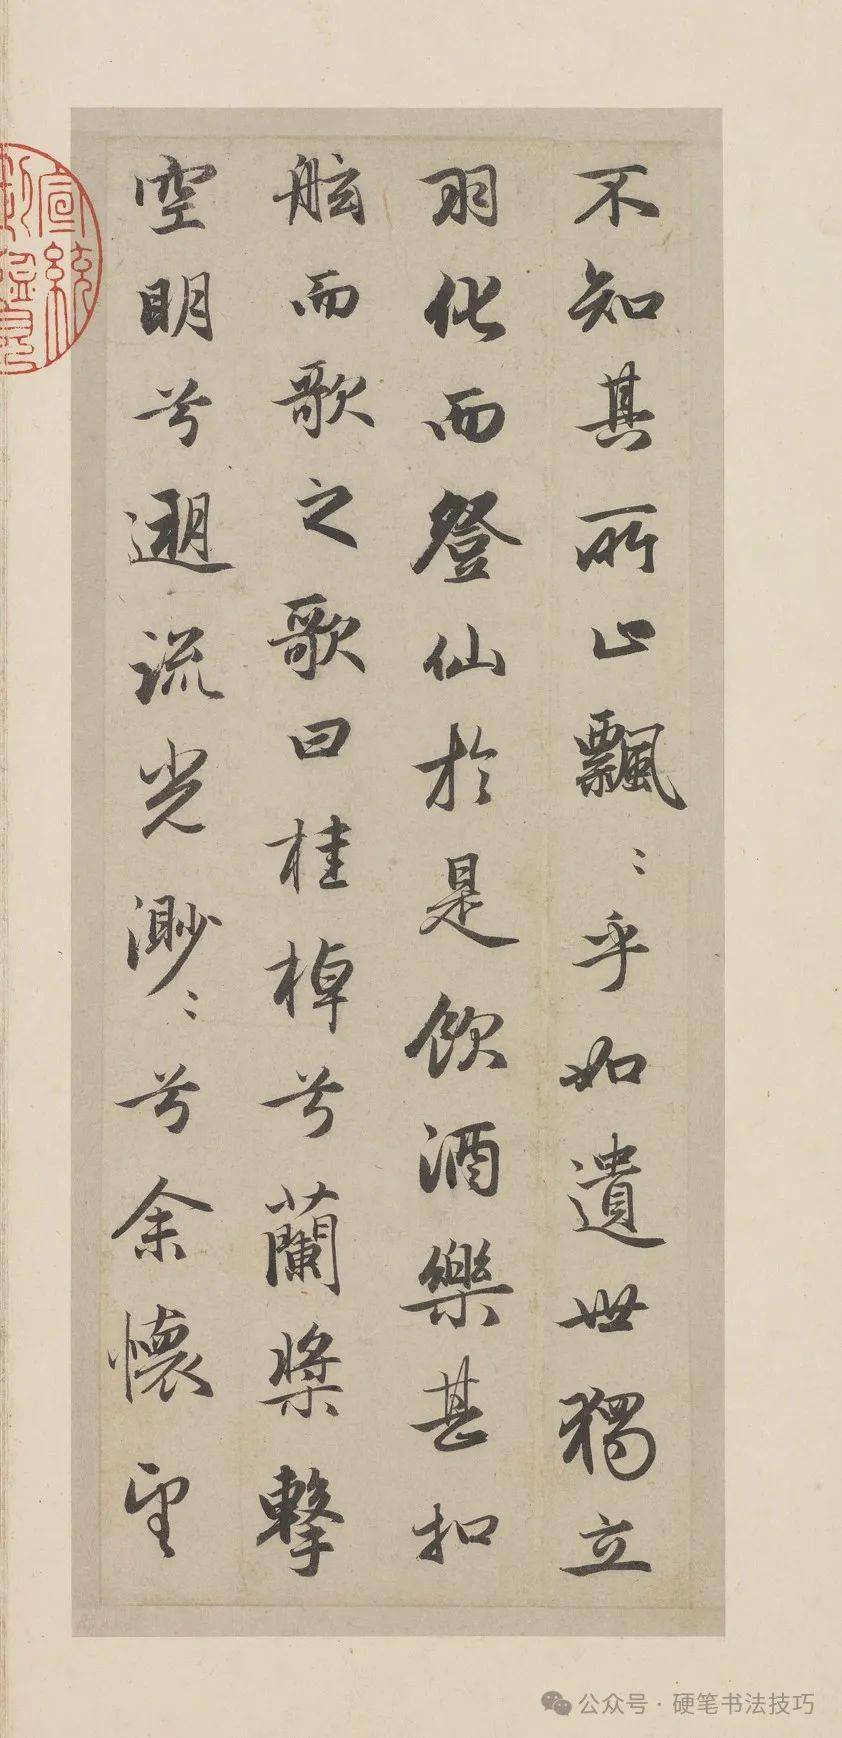 不知其所止飄〻乎如遺世獨立
羽化而登仙於是飲酒樂甚扣
舷而歌之歌曰桂棹兮蘭槳擊
空明兮遡流光渺〻兮余懷望
宣統御覽
公众号·硬笔书法技巧